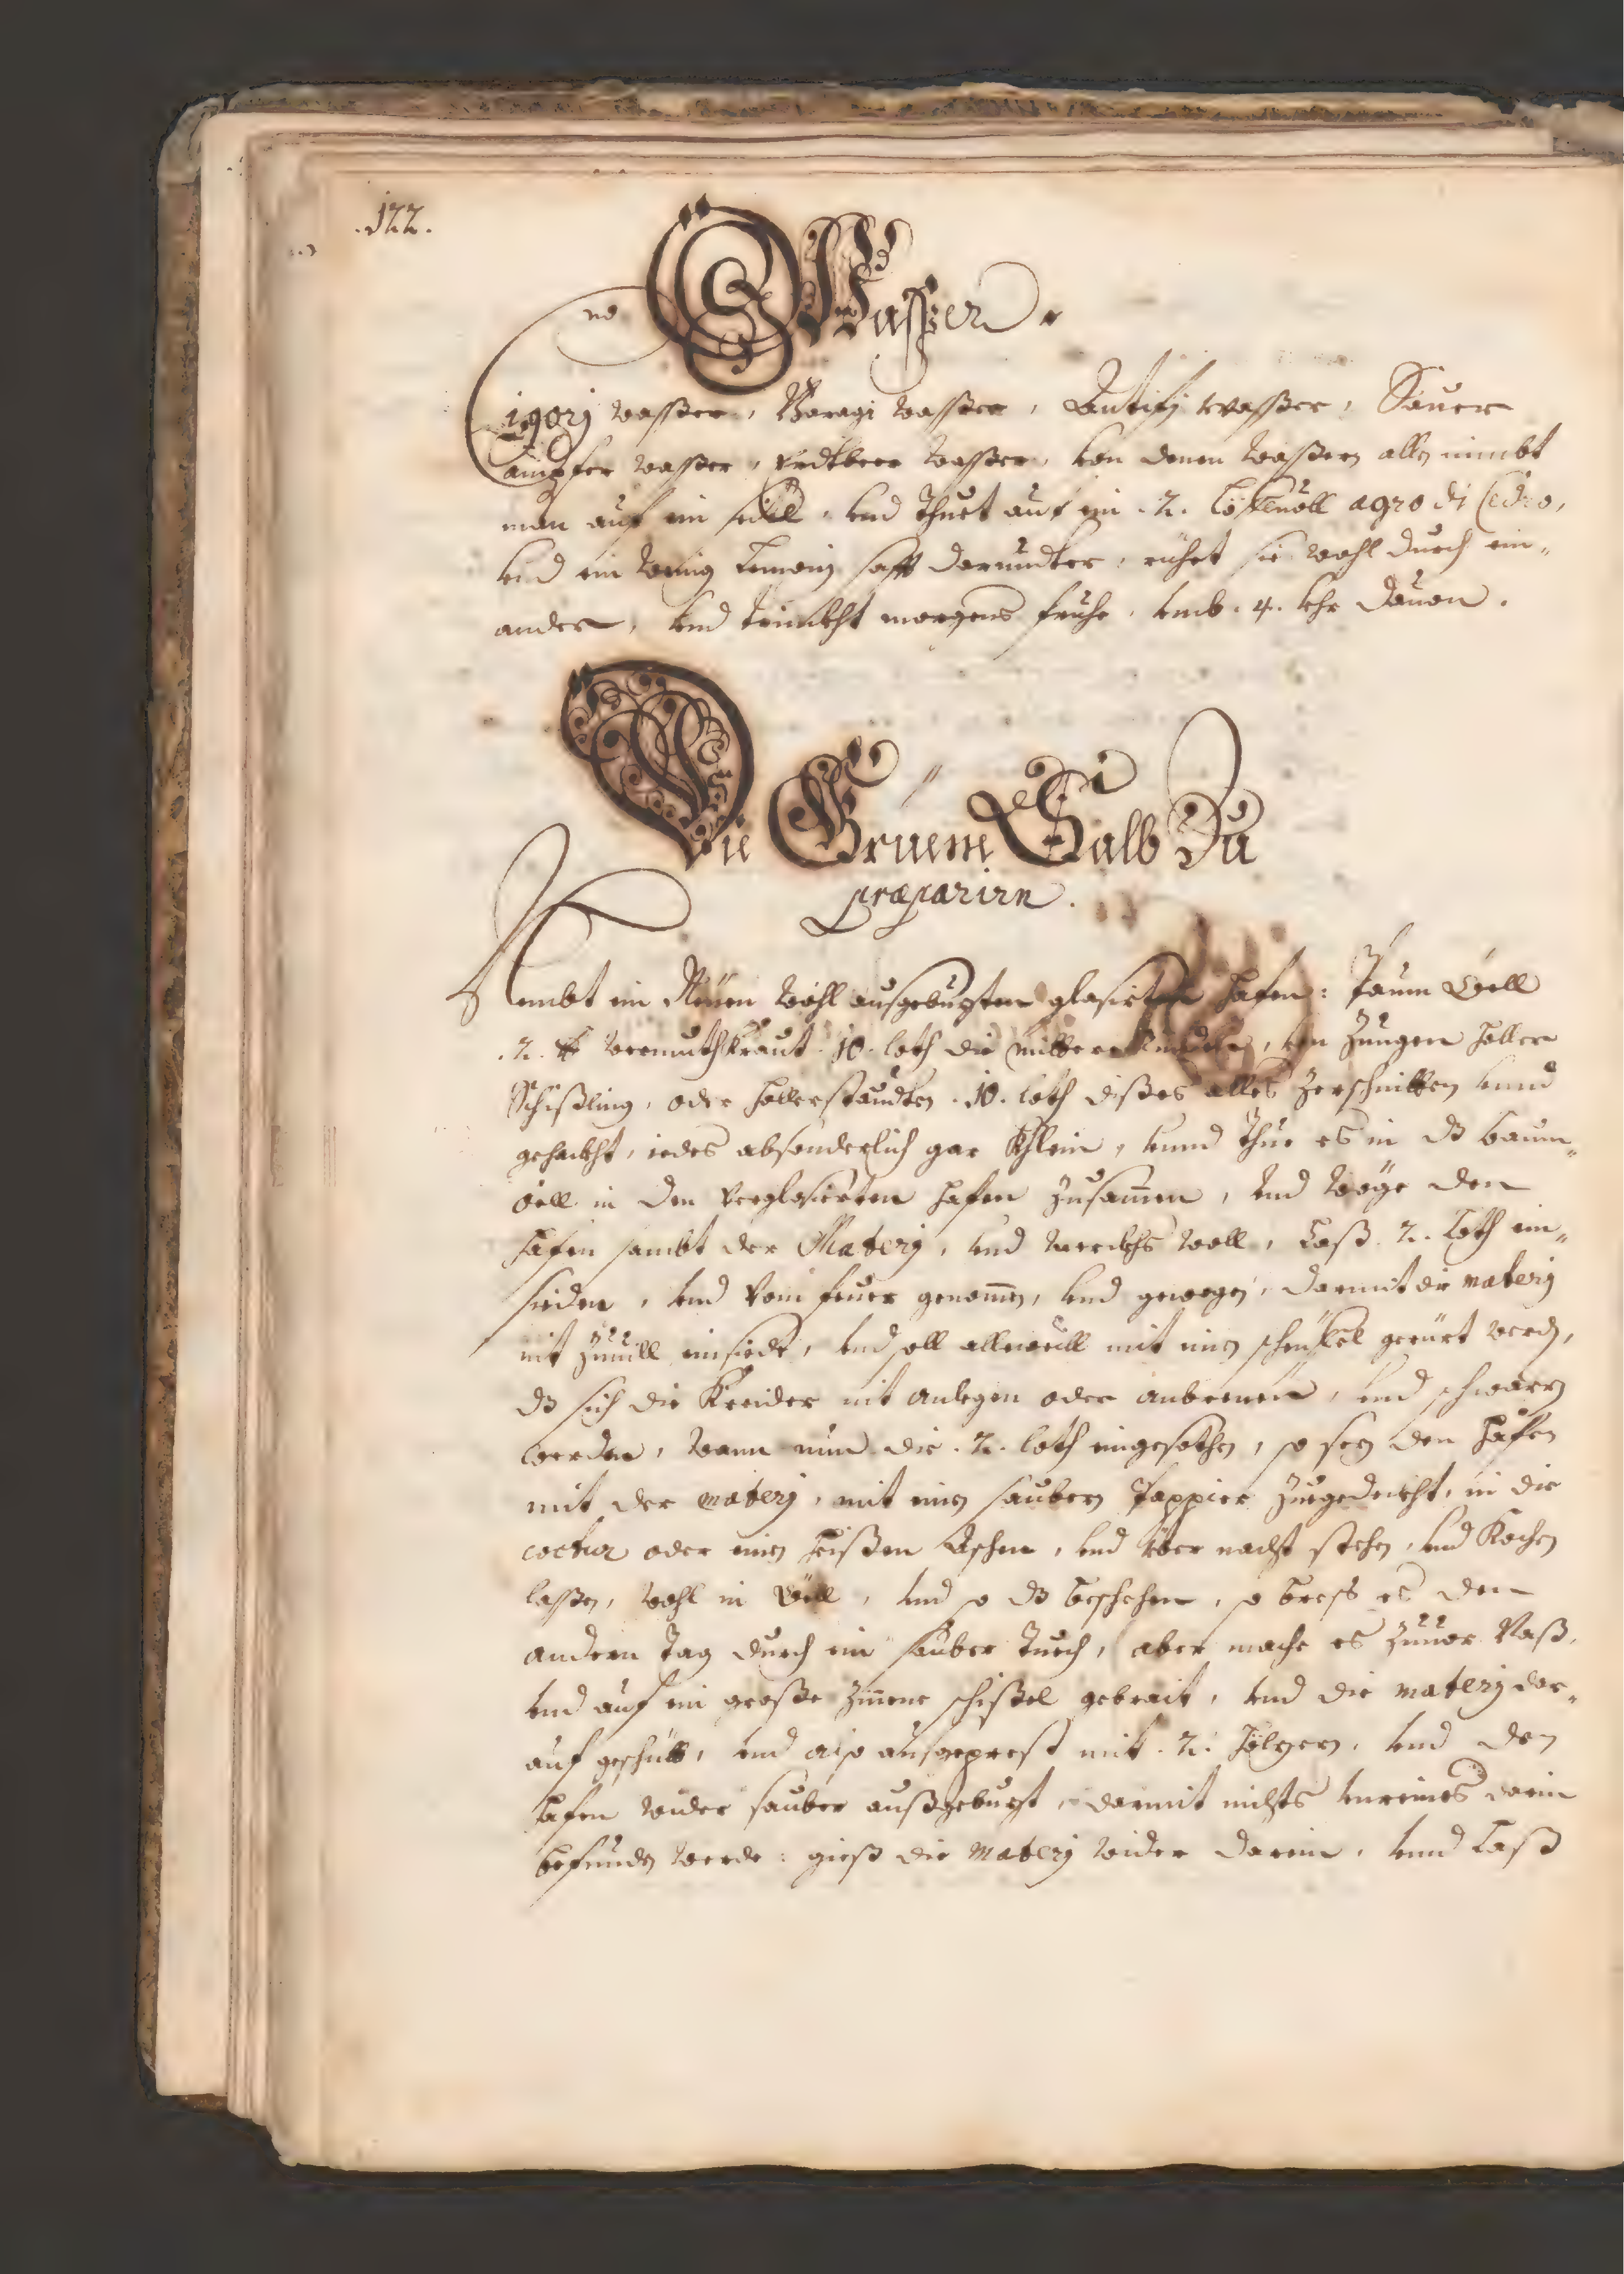 .122.
Ein Wasser.
Cigorj wasser, Boragi wasser, Antifj wasser, Sauer
ampfer wasser, Erdtbeer wasser, von denen wassern allen nimbt
man auf ein seidl, vnd thuet auf ein .2. Löffluöll agro di Cedro,
vnd ein wenig Lemonj safft darundter, rühret sie wohl durch ein-
ander, vnd trinckht morgens frühe, vmb .4. vhr dauon.
Die Gruene Salb Zu
præparirn.
Nembt ein Neuen wohl ausgebuzten glasirten hafen: Paum Öell
.2. ℔ wermuthkraut .10. loth die mittere rindten, von Jungen holler
Schißling, oder hollerstaudten .10. loth dißes alles zerschnitten vnnd
gehackht, iedes absonderlich gar Khlein, vnnd thue es in dz baum-
öell in den verglasierten hafen zusamen, vnd wöge den
hafen sambt der Materj, vnd merckhs woll, Laß .2. Loth ein-
sieden, vnd vom feuer genomen, vnd gewogen, darmit die materj
nit zuuill einsiede, vnd soll alleweill mit einen schäuffel gerürt werden,
dz sich die Kreider nit anlegen oder anbrenen, vnd schwarz
werden, wann nun die .2. loth eingesothen, so sez den hafen
mit der materj, mit einen saubern Pappier zuegedeckht, in die
coctur oder einen heißen Aschen, vnd über nacht stehen, vnd Kochen
lassen, wohl in Öell, vnd so dz beschehen, so press es den
andern tag durch ein sauber tuech, aber mache es zuuor Naß,
vnd auf ein große zinene schißel gebrait, vnd die materj dar-
auf geschütt, vnd also ausgeprest mit .2. hölzern, vnd den
hafen wider sauber außgebuzt, darmit nichts vnreines darin
befunden werde: gieß die materj wider darein, vnnd Laß